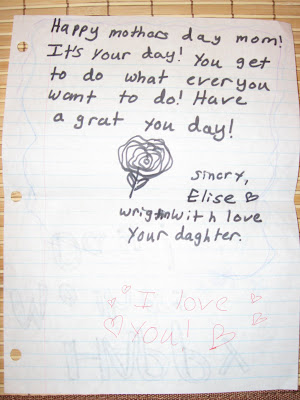 Happy mothers day mom!
It's your day! You get
to do what ever you
want to do! Have
a grat you day!
sincry,
Elise
wrightn with love
your daghter.
I love
You!